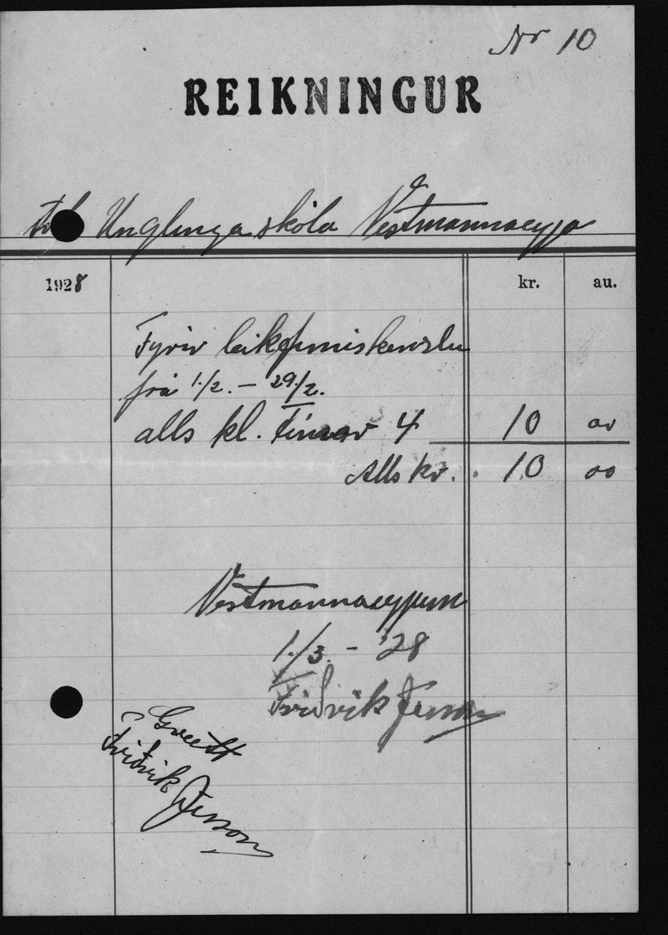 Nr 10
REIKNINGUR
Unglingaskóla Vestmannaeyja
1928 kr. au.
Fyrir leikfimiskenslu
frá 1/2. – 29/2.
alls kl. tímar 4 10 00
Alls kr. 10 00
Vestmannaeyjum
1/3 – '28
Friðrik Jesson
Greitt
Friðrik Jesson